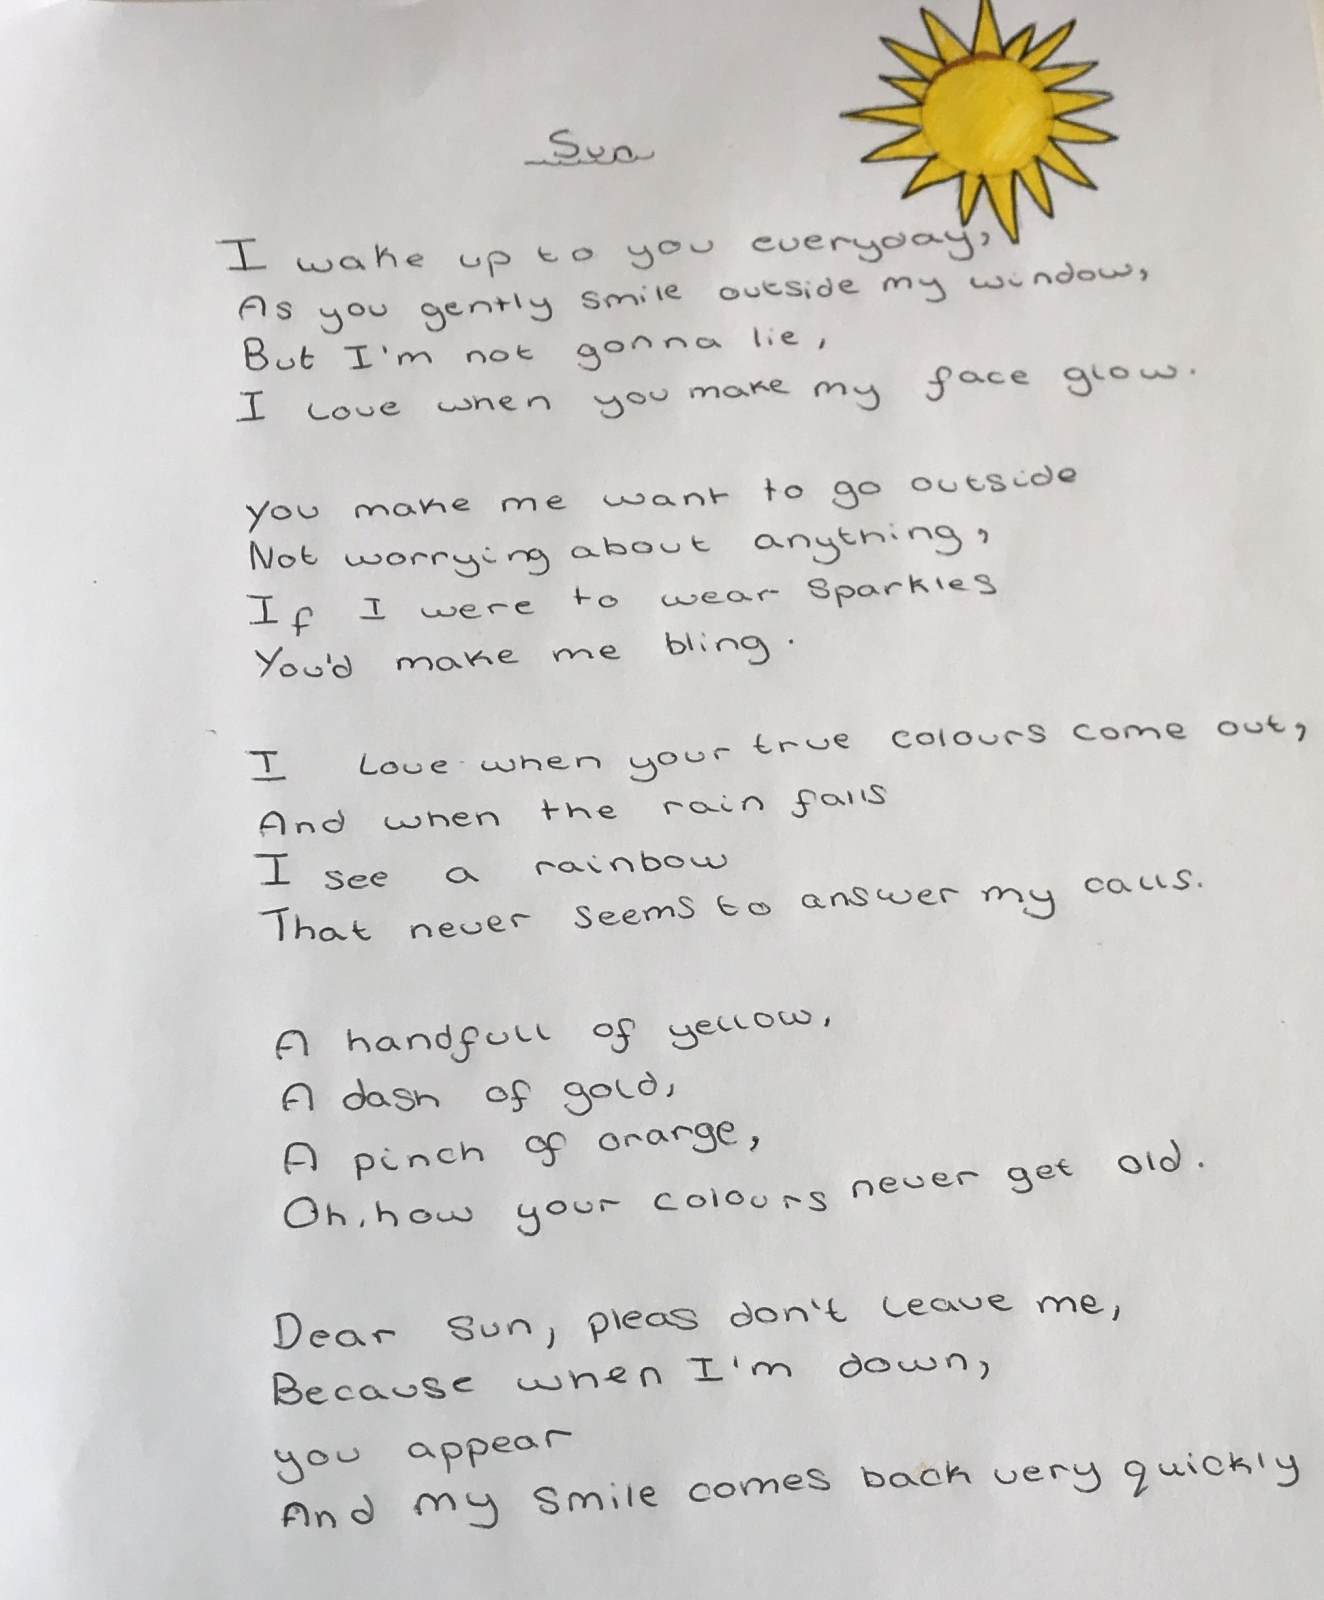 Sun
I wake up to you everyday,
As you gently smile outside my window,
But I'm not gonna lie,
I love when you make my face glow.
You make me want to go outside
Not worrying about anything,
If I were to wear sparkles
You'd make me bling.
I love when your true colours come out,
And when the rain falls
I see a rainbow
That never seems to answer my calls.
A handfull of yellow,
A dash of gold,
A pinch of orange,
Oh, how your colours never get old.
Dear sun, pleas don't leave me,
Because when I'm down,
you appear
And my smile comes back very quickly